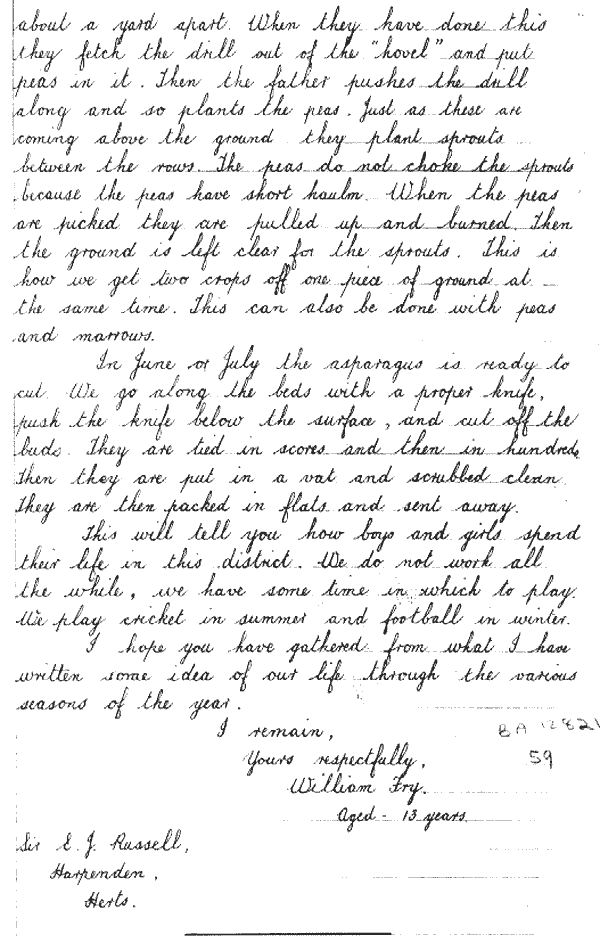 about a yard apart. When they have done this
they fetch the drill out of the "hovel" and put
peas in it. Then the father pushes the drill
along and so plants the peas. Just as these are
coming above the ground they plant sprouts
between the rows. The peas do not choke the sprouts
because the peas have short haulm. When the peas
are picked they are pulled up and burned. Then
the ground is left clear for the sprouts. This is
how we get two crops off one piece of ground at
the same time. This can also be done with peas
and marrows.
In June or July the asparagus is ready to
cut. We go along the beds with a proper knife,
push the knife below the surface, and cut off the
buds. They are tied in scores and then in hundreds.
Then they are put in a vat and scrubbed clean.
They are then packed in flats and sent away.
This will tell you how boys and girls spend
their life in this district. We do not work all
the while, we have some time in which to play.
We play cricket in summer and football in winter.
I hope you have gathered from what I have
written some idea of our life through the various
seasons of the year.
I remain,
Yours respectfully,
William Fry.
Aged - 13 years.
BA 12821
59
Sir E. J. Russell,
Harpenden,
Herts.